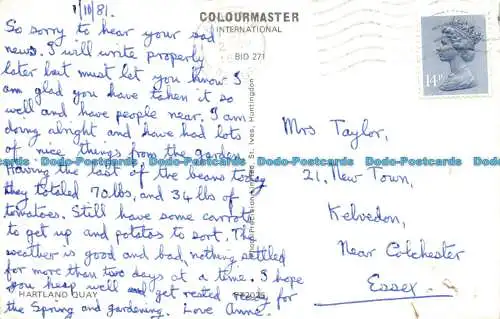 1/10/81.
COLOURMASTER
INTERNATIONAL
BID 271
So sorry to hear your sad
news. I will write properly
later but must let you know I
am glad you have taken it so
well and have people near. I am
doing alright and have had lots
of nice things from the garden.
Having the last of the beans today
they totaled 70 lbs, and 34 lbs of
tomatoes. Still have some carrots
to get up and potatos to sort. The
weather is good and bad, nothing settled
for more than two days at a time. I hope
you keep well and get rested ready for
the Spring and gardening. Love Anne.
HARTLAND QUAY
Photo Precision Limited, St. Ives, Huntingdon
14P
Mrs Taylor,
21. New Town,
Kelvedon,
Near Colchester
Essex.
Dodo-Postcards Dodo-Postcards Dodo-Postcards Dodo-Postcards Dodo-Postcards